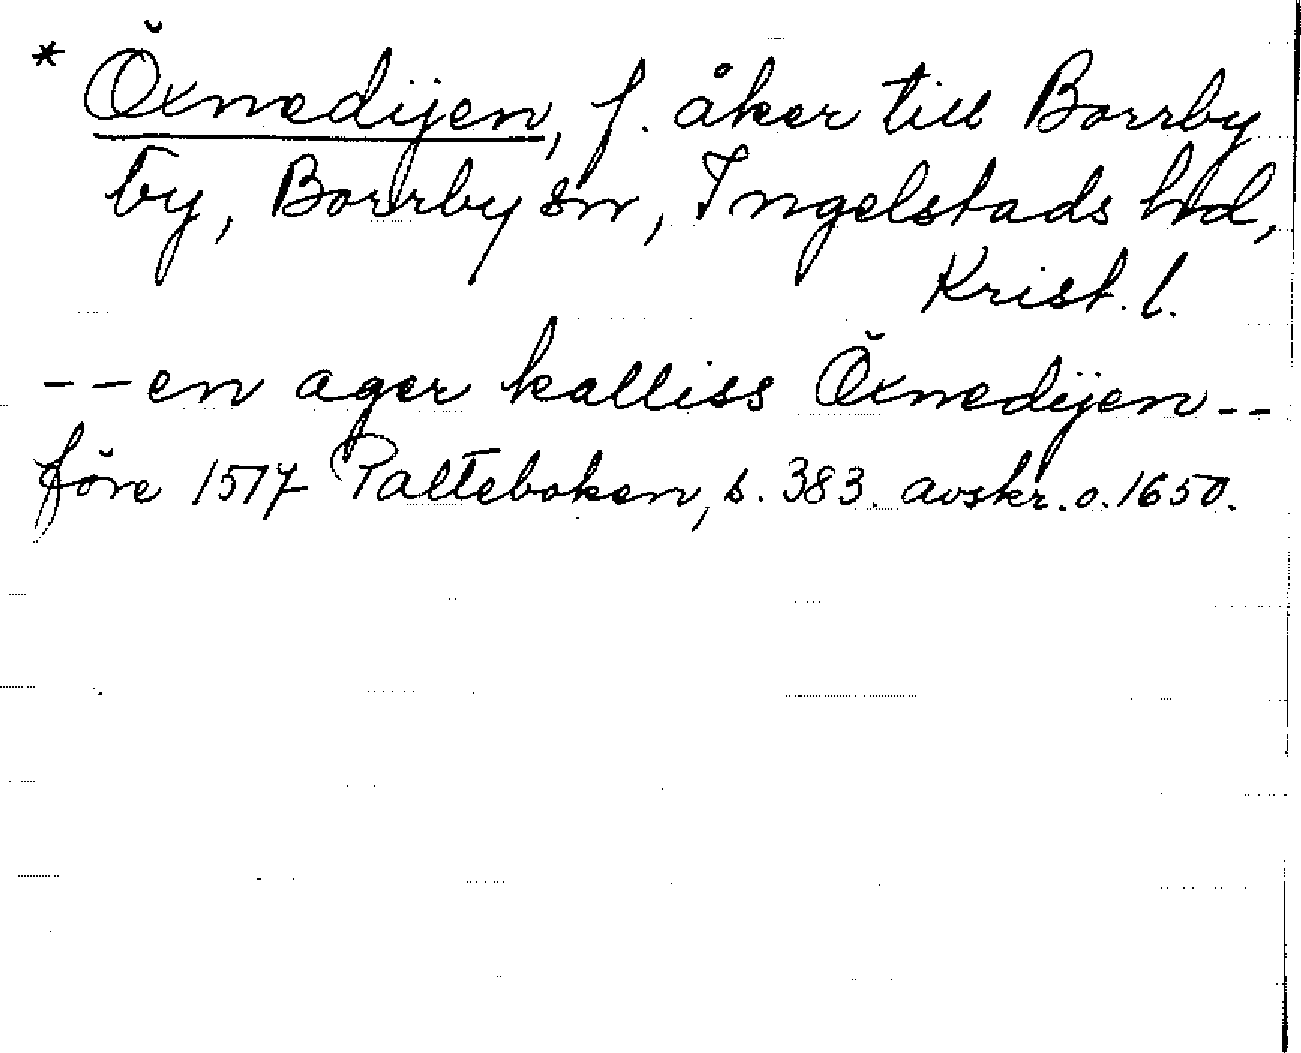 * Öxnedijen, f. åker till Borrby
by, Borrby sn, Ingelstads hd,
Krist. l.
--en ager kalliss Öxnedijen--
före 1517 Palteboken, s. 383. avskr. o. 1650.